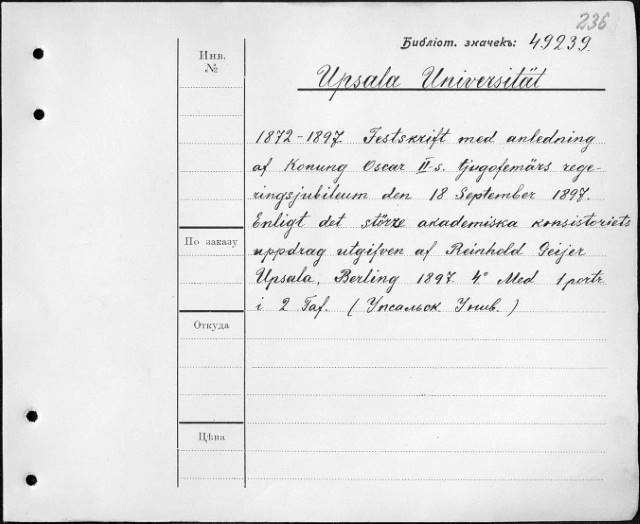 236
Библiот. значекъ: 49239.
Инв.
№
Upsala Universität
1872-1897. Festskrift med anledning
af Konung Oscar II-s. tjugofemårs rege-
ringsjubileum den 18 September 1897.
Enligt det störze akademiska konsistoriets
По заказу
uppdrag utgifven af Reinhold Geijer
Upsala, Berling 1897. 4° Med 1 portr.
i 2 Taf. (Упсальск. Унив.)
Откуда
Цѣна